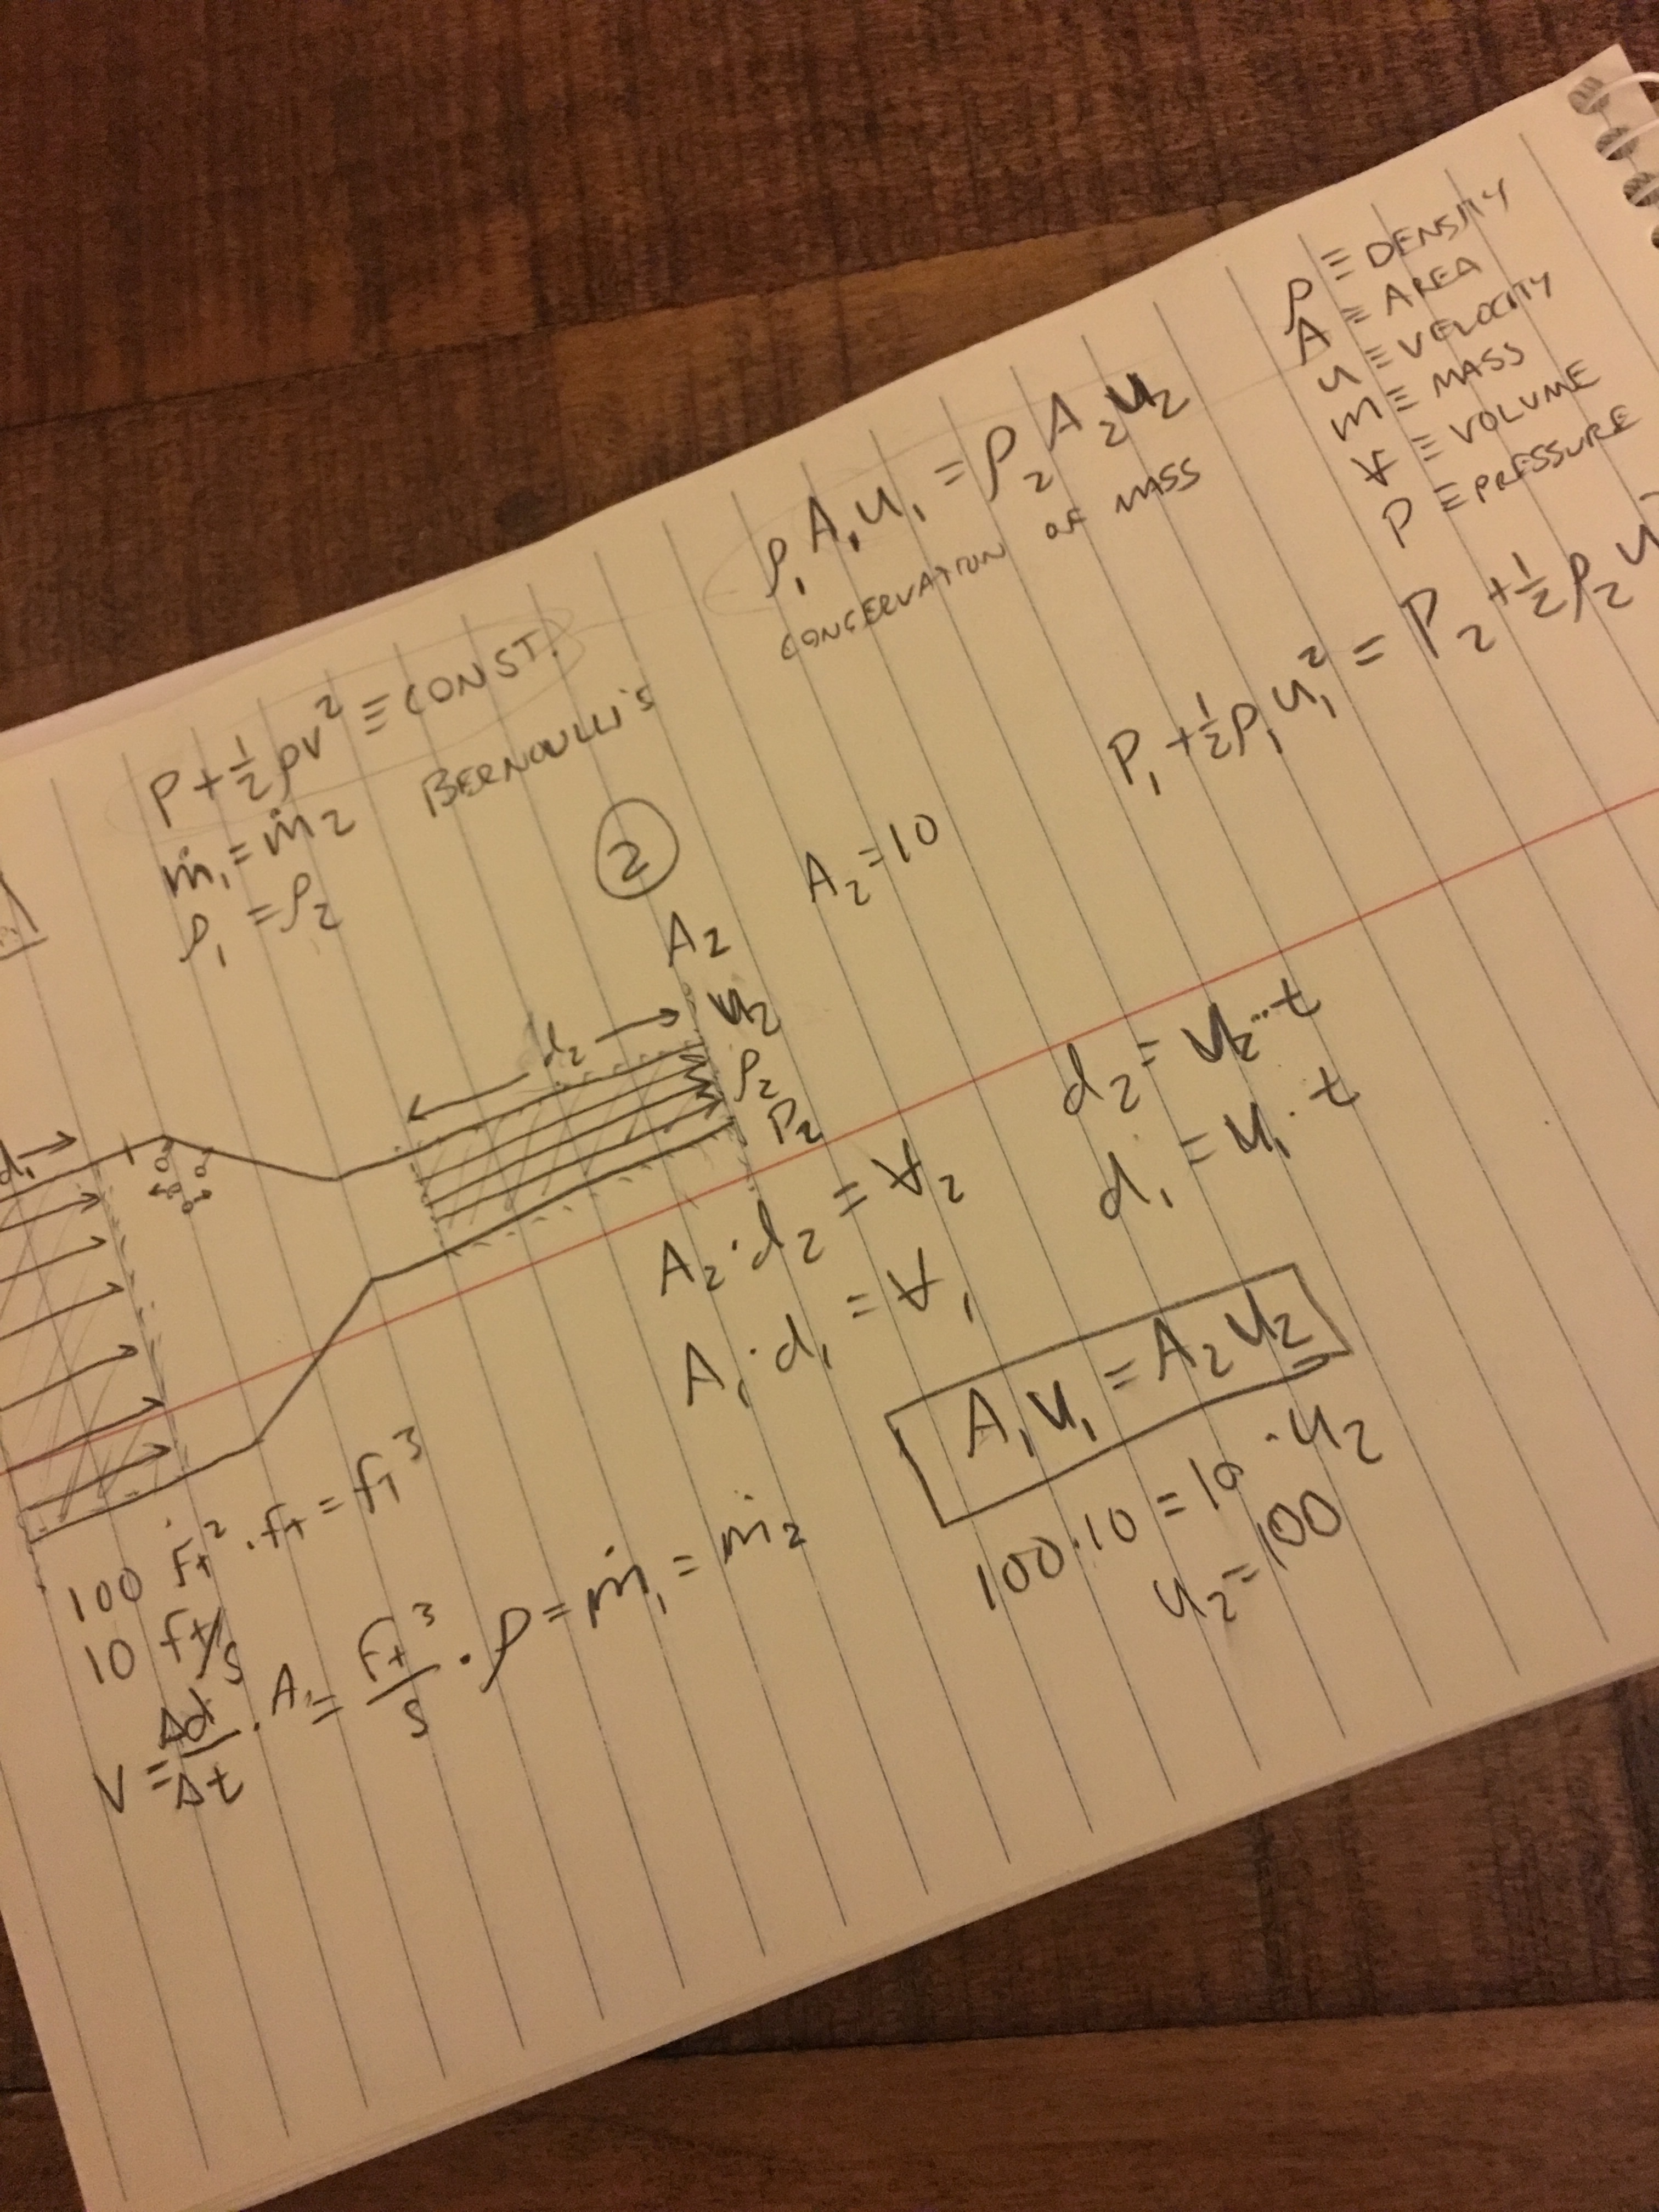 ρ ≡ DENSITY
A ≡ AREA
u ≡ VELOCITY
m ≡ MASS
V̶ ≡ VOLUME
P ≡ PRESSURE
ρ₁A₁u₁ = ρ₂A₂u₂
CONCERVATION OF MASS
P + ½ρv² ≡ CONST.
BERNOULLI'S
ṁ₁ = ṁ₂
ρ₁ = ρ₂
P₁ + ½ρ₁u₁² = P₂ + ½ρ₂u
2
A₂ = 10
A₂
u₂
ρ₂
P₂
d₂
d₁
d₂ = u₂·t
d₁ = u₁·t
A₂·d₂ = V̶₂
A₁·d₁ = V̶₁
A₁u₁ = A₂u₂
100·10 = 10·u₂
u₂ = 100
100 ft²·ft = ft³
10 ft/s
V = Δd/Δt · A₁ = ft³/s · ρ = ṁ₁ = ṁ₂